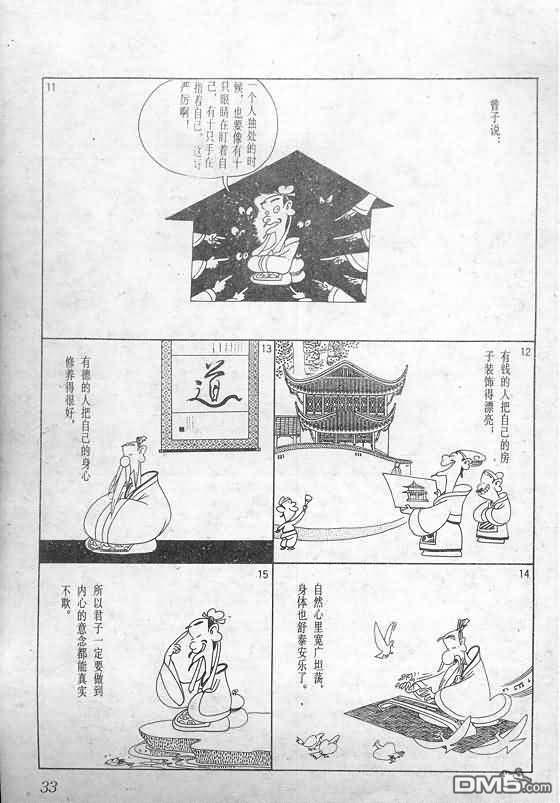 11
曾子说：
一个人独处的时
候，也要像有十
只眼睛在盯着自
己，有十只手在
指着自己，这
严厉啊！
12
有钱的人把自己的房
子装饰得漂亮；
13
有德的人把自己的身心
修养得很好，
道
14
自然心里宽广坦荡，
身体也舒泰安乐了。
15
所以君子一定要做到
内心的意念都能真实
不欺。
33
DM5.com